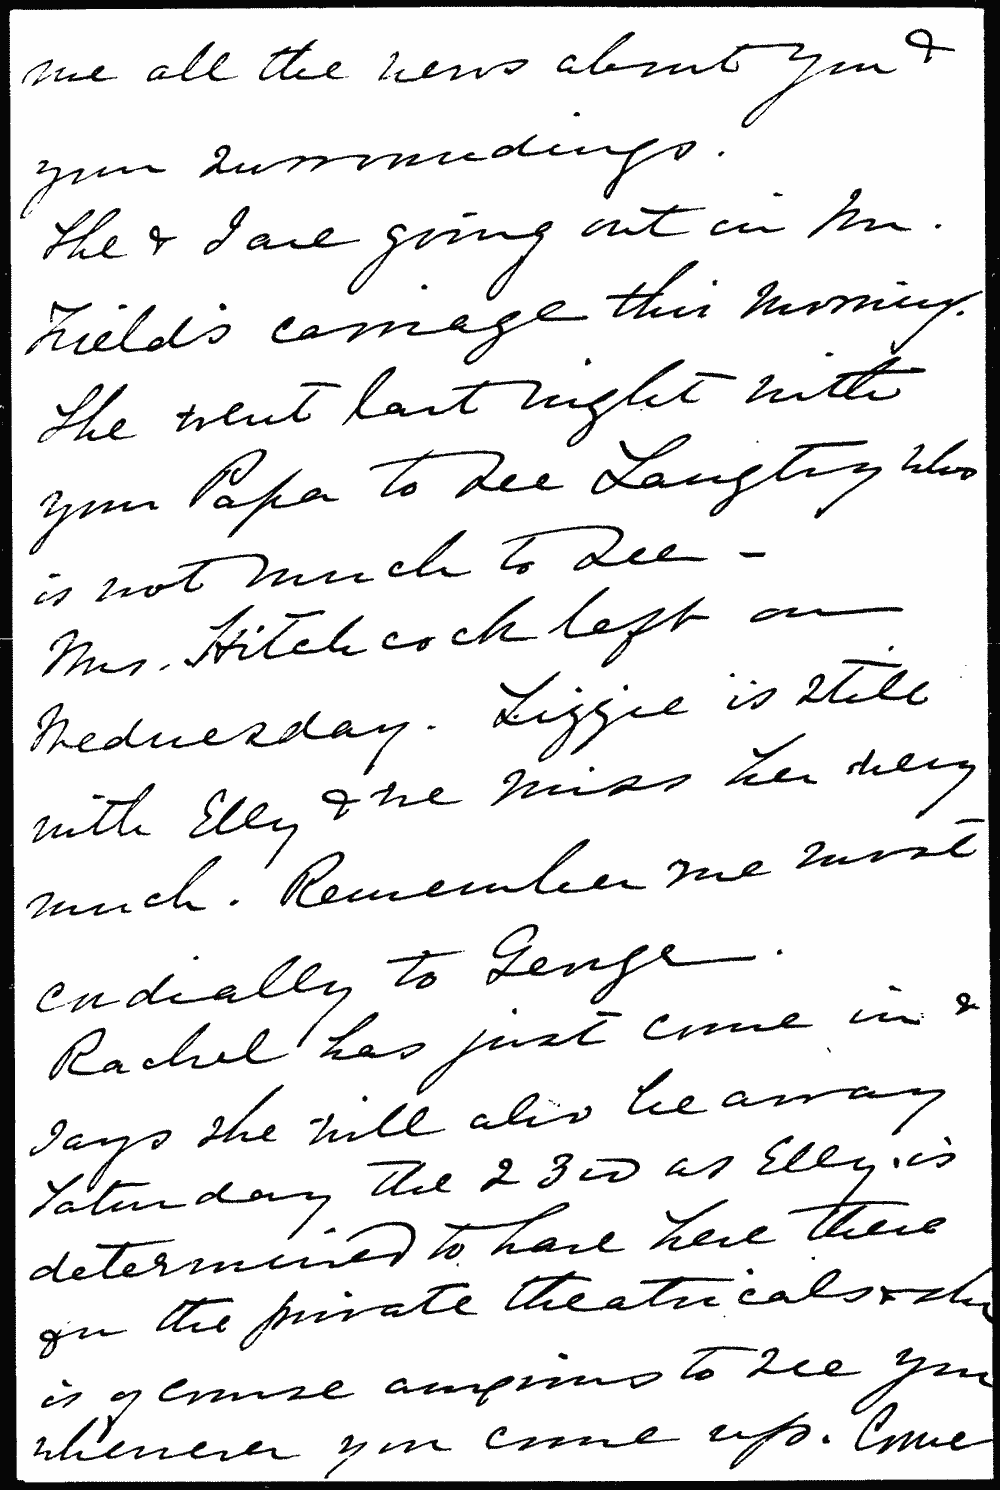 me all the news about you &
your surroundings.
She & I are going out in Mr.
Field's carriage this morning.
She went last night with
your Papa to see Langtry who
is not much to see -
Mrs. Hitchcock left on
Wednesday. Lizzie is still
with Elly & we miss her very
much. Remember me most
cordially to George.
Rachel has just come in &
says she will also be away
Saturday the 23rd as Elly is
determined to have her there
for the private theatricals & she
is of course anxious to see you
whenever you come up. Come